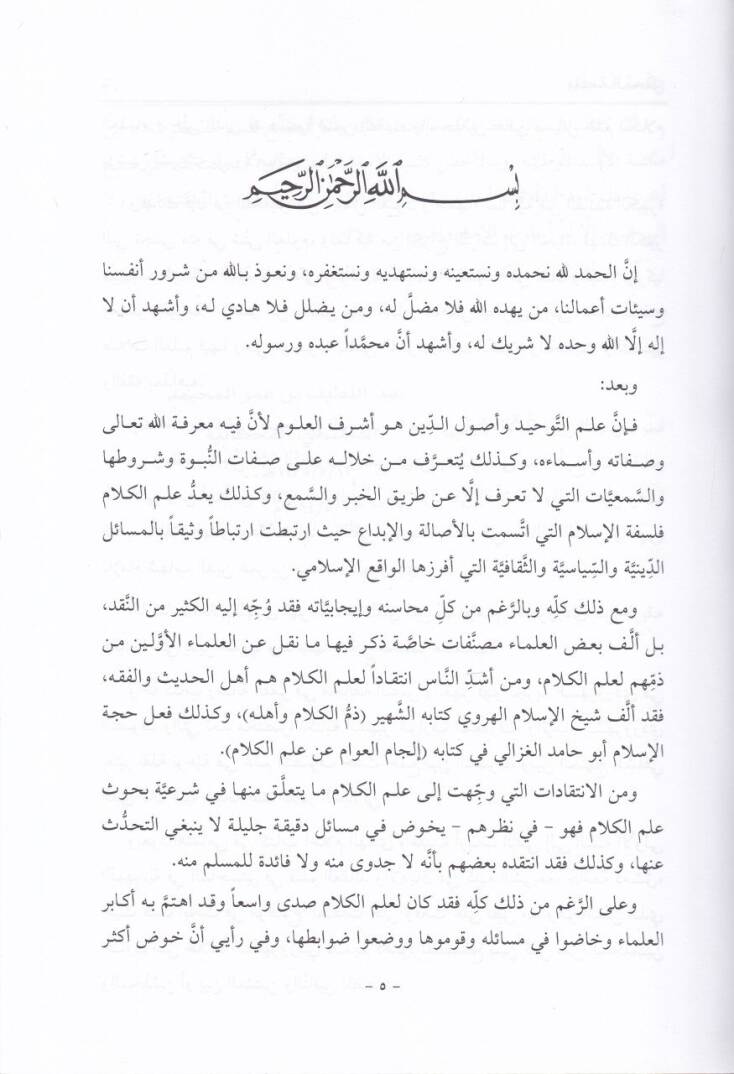 بسم الله الرحمن الرحيم
إنَّ الحمد لله نحمده ونستعينه ونستهديه ونستغفره، ونعوذ بالله من شرور أنفسنا
وسيئات أعمالنا، من يهده الله فلا مضلَّ له، ومن يضلل فلا هادي له، وأشهد أن لا
إله إلَّا الله وحده لا شريك له، وأشهد أنَّ محمَّداً عبده ورسوله.
وبعد:
فإنَّ علم التَّوحيد وأصول الدِّين هو أشرف العلوم لأنَّ فيه معرفة الله تعالى
وصفاته وأسماءه، وكذلك يُتعرَّف من خلاله على صفات النُّبوة وشروطها
والسَّمعيَّات التي لا تعرف إلَّا عن طريق الخبر والسَّمع، وكذلك يعدُّ علم الكلام
فلسفة الإسلام التي اتَّسمت بالأصالة والإبداع حيث ارتبطت ارتباطاً وثيقاً بالمسائل
الدِّينيَّة والسِّياسيَّة والثَّقافيَّة التي أفرزها الواقع الإسلامي.
ومع ذلك كلِّه وبالرَّغم من كلِّ محاسنه وإيجابيَّاته فقد وُجِّه إليه الكثير من النَّقد،
بل ألَّف بعض العلماء مصنَّفات خاصَّة ذكر فيها ما نقل عن العلماء الأوَّلين من
ذمِّهم لعلم الكلام، ومن أشدِّ النَّاس انتقاداً لعلم الكلام هم أهل الحديث والفقه،
فقد ألَّف شيخ الإسلام الهروي كتابه الشَّهير (ذمُّ الكلام وأهله)، وكذلك فعل حجة
الإسلام أبو حامد الغزالي في كتابه (إلجام العوام عن علم الكلام).
ومن الانتقادات التي وجِّهت إلى علم الكلام ما يتعلَّق منها في شرعيَّة بحوث
علم الكلام فهو - في نظرهم - يخوض في مسائل دقيقة جليلة لا ينبغي التحدُّث
عنها، وكذلك فقد انتقده بعضهم بأنَّه لا جدوى منه ولا فائدة للمسلم منه.
وعلى الرَّغم من ذلك كلِّه فقد كان لعلم الكلام صدى واسعاً وقد اهتمَّ به أكابر
العلماء وخاضوا في مسائله وقوموها ووضعوا ضوابطها، وفي رأيي أنَّ خوض أكثر
- ٥ -